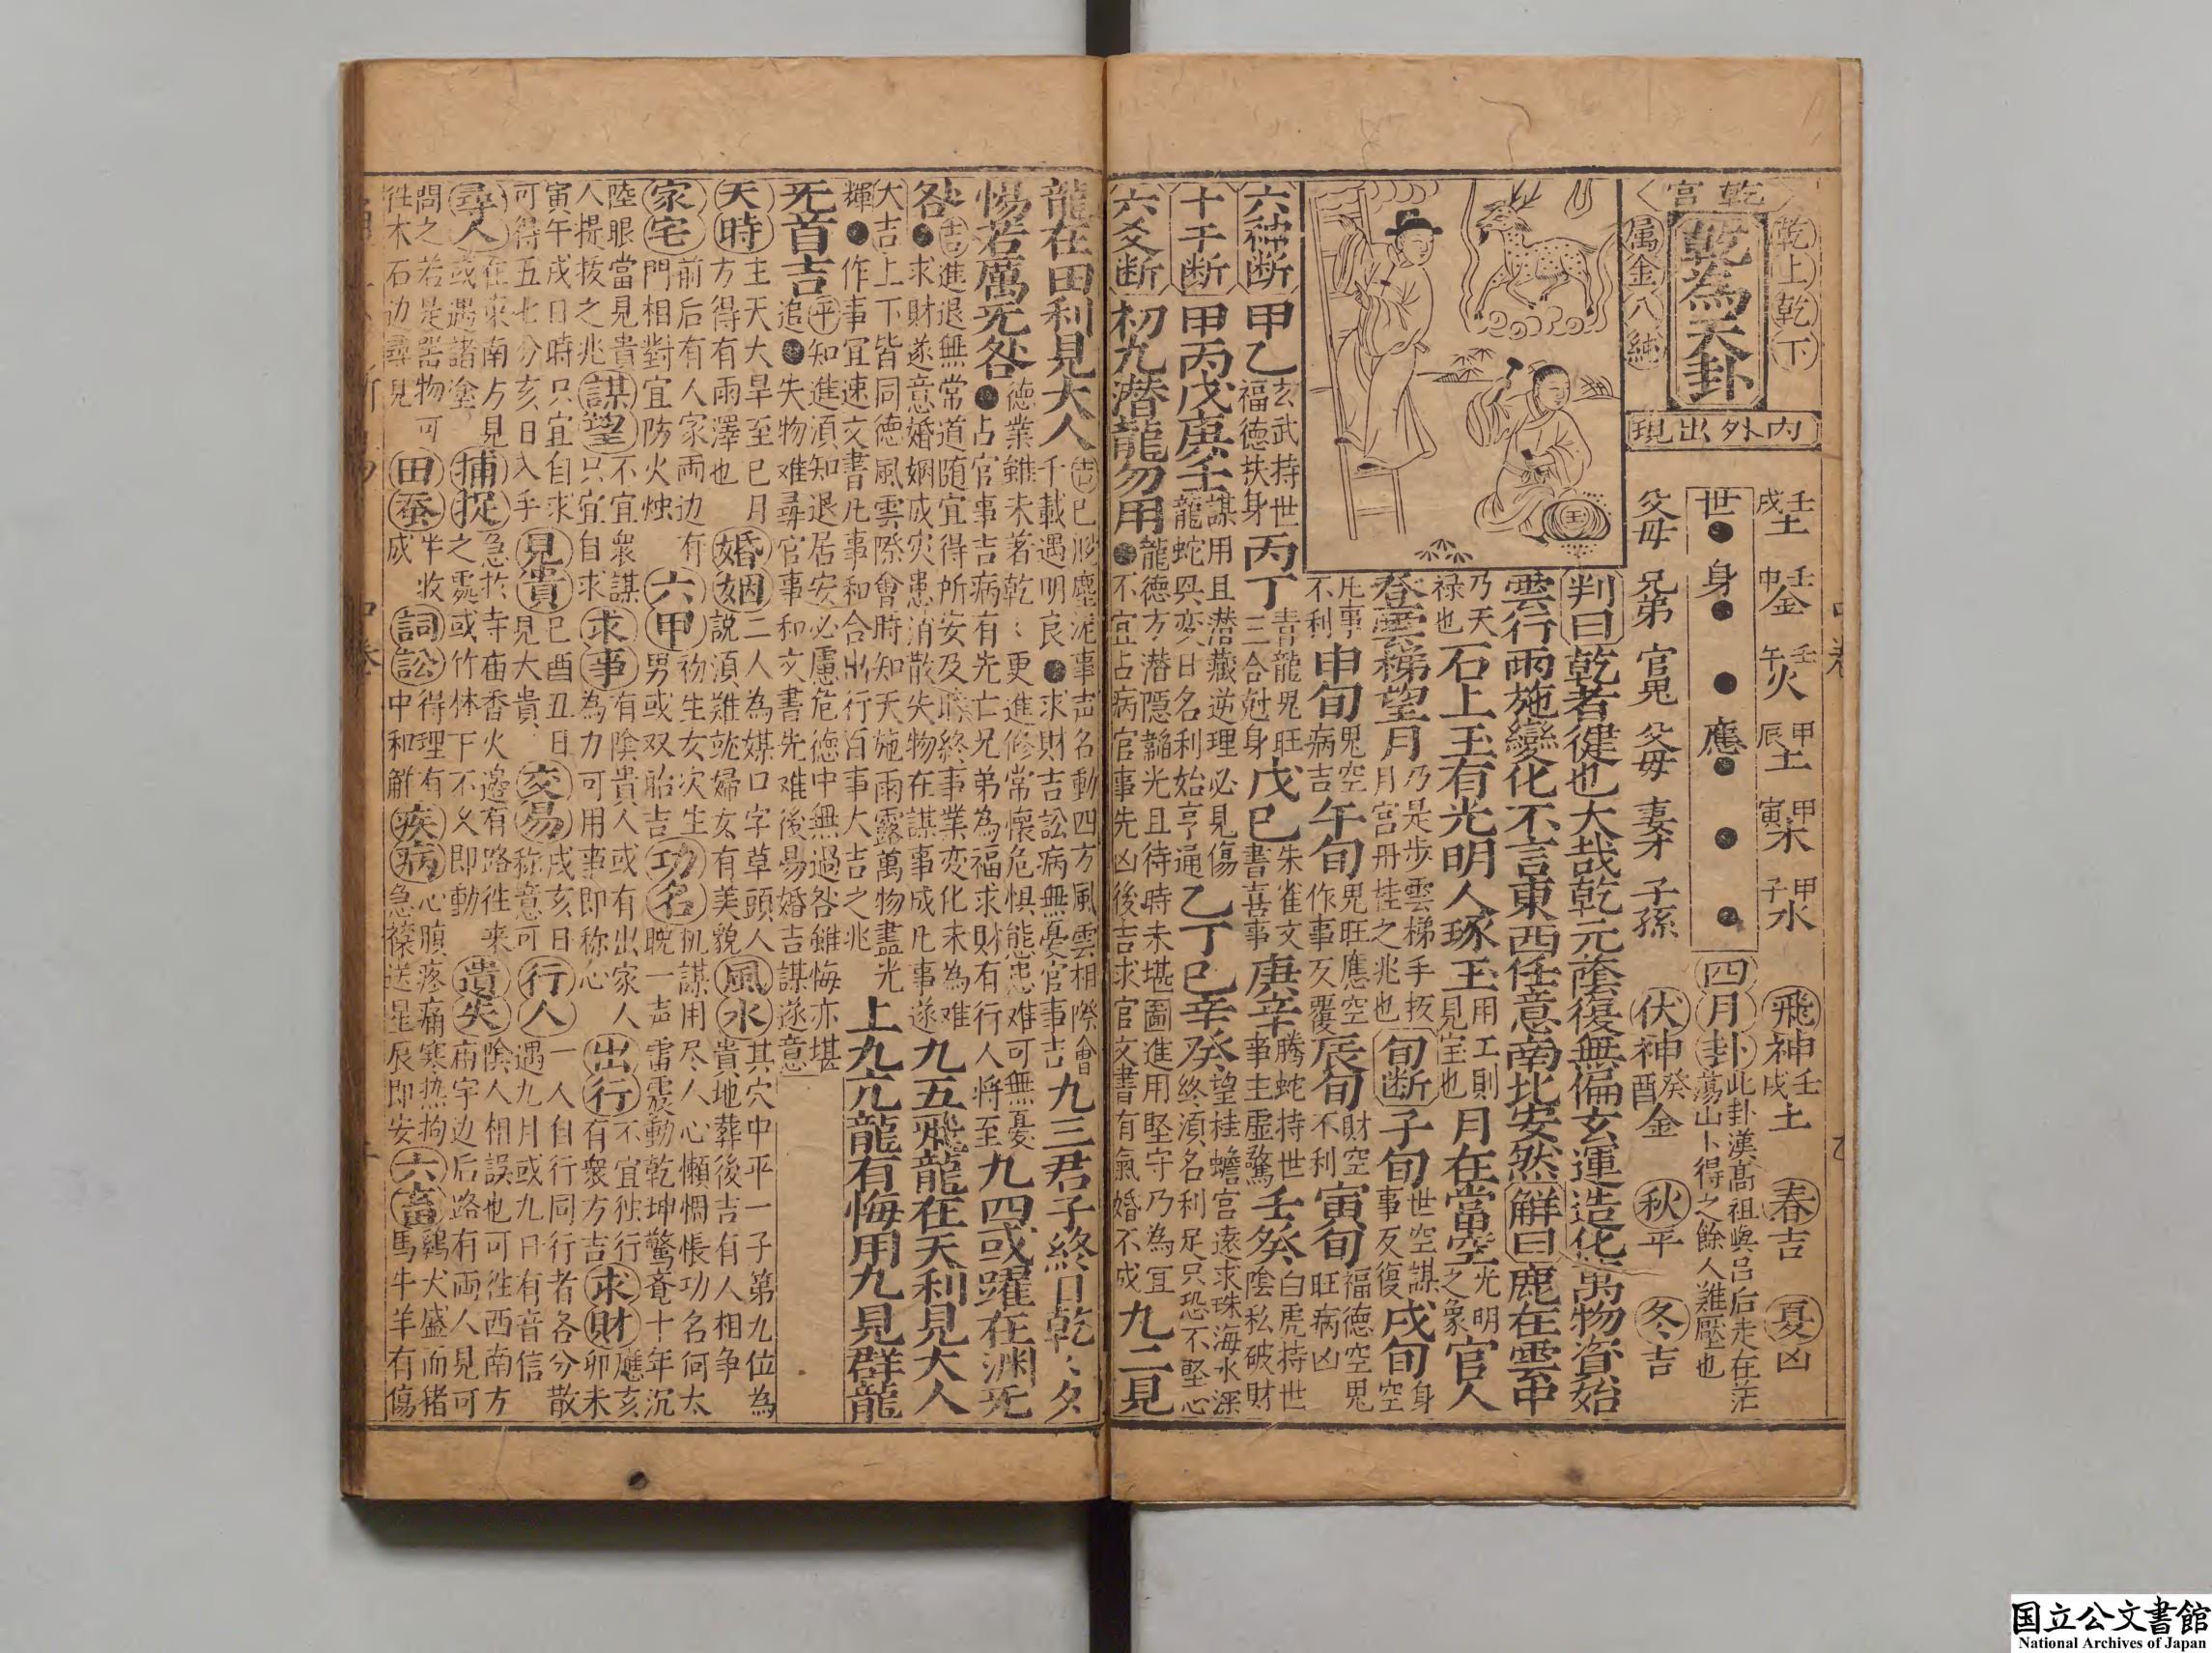 乾宮
乾上乾下
乾為天卦
属金八純
內外出現
壬戌土 壬申金 壬午火 甲辰土 甲寅木 甲子水
世 身 應
父母 兄弟 官鬼 父母 妻才 子孫
飛神壬戌土 春吉 夏凶
四月卦 此卦漢高祖與呂后走在茫蕩山卜得之餘人難壓也
伏神癸酉金 秋平 冬吉
判曰乾者健也大哉乾元蔭復無偏玄運造化萬物資始
雲行雨施變化不言東西任意南北安然解曰鹿在雲中
乃天禄也石上玉有光明人琢玉用工則見宝也月在當空光明之象官人
登雲梯望月乃是步雲梯手扳月宮丹桂之兆也旬断子旬世空謀事反復戌旬身空
凡事不利申旬鬼空病吉午旬鬼旺應空作事反覆辰旬財空不利寅旬福德空鬼旺病凶
六神断甲乙玄武持世福德扶身丙丁青龍鬼旺三合尅身戊己朱雀文書喜事庚辛螣蛇持世事主虛驚壬癸白虎持世陰私破財
十干断甲丙戊庚壬謀用且潜藏逆理必見傷龍蛇與変日名利始亨通乙丁己辛癸望桂蟾宮遠求珠海水深終須名利足只恐不堅心
六爻断初九潜龍勿用龍德方潜隱韜光且待時未堪圖進用堅守乃為宜●不宜占病官事先凶後吉求官文書有氣婚不成九二見
龍在田利見大人吉已脫塵泥事声名動四方風雲相際會千載遇明良●求財吉訟病無憂官事吉九三君子終日乾〻夕
惕若厲无咎●德業雖未著乾〻更進修常懷危惧能忠难可無憂占官事吉病有先亡兄弟為福求財有行人将至九四或躍在渊无
咎●吉進退無常道随宜得所安及時終事業変化未為难求財遂意婚姻成灾患消散失物在謀事成凡事遂九五飛龍在天利見大人
大吉上下皆同德風雲際會時知天施雨露萬物盡光輝●作事宜速文書凡事和合出行百事大吉之兆上九亢龍有悔用九見群龍
无首吉平知進須知退居安必慮危德中無過咎雖悔亦堪追●失物难尋官事和文書先难後易婚吉謀遂意
天時主天大旱至已月方得有雨澤也婚姻二人為媒口字草頭人說須难就婦女有美貌風水其穴中平一子第九位為貴地葬後吉有人相争
家宅前后有人家両边有門相對宜防火烛六甲初生女次生男或双胎吉功名机謀用尽人心懶惆悵功名何太晚一声雷震動乾坤驚竜十年沉
陸眼當見貴人提拔之兆謀望不宜衆謀只宜自求求事有陰貴人或有出家人為力可用事即称心出行不宜独行有衆方吉求財應亥卯未
寅午戌日時只宜自求可得五七分亥日入手見貴己酉丑日見大貴交易戌亥日称意可行人一人自行同行者各分散遇九月或九日有音信
尋人在東南方見或遇諸塗捕捉急於寺庙香火邊有路徃来之處或竹林下不久即動遺失陰人相誤也可徃西南方庙宇边后路有両人見可
問之若是器物可徃木石边尋見田蚕半收成詞訟得理有中和解疾病心腹疼痛寒热拘急禳送星辰即安六畜鷄犬盛而猪馬牛羊有傷
国立公文書館
National Archives of Japan